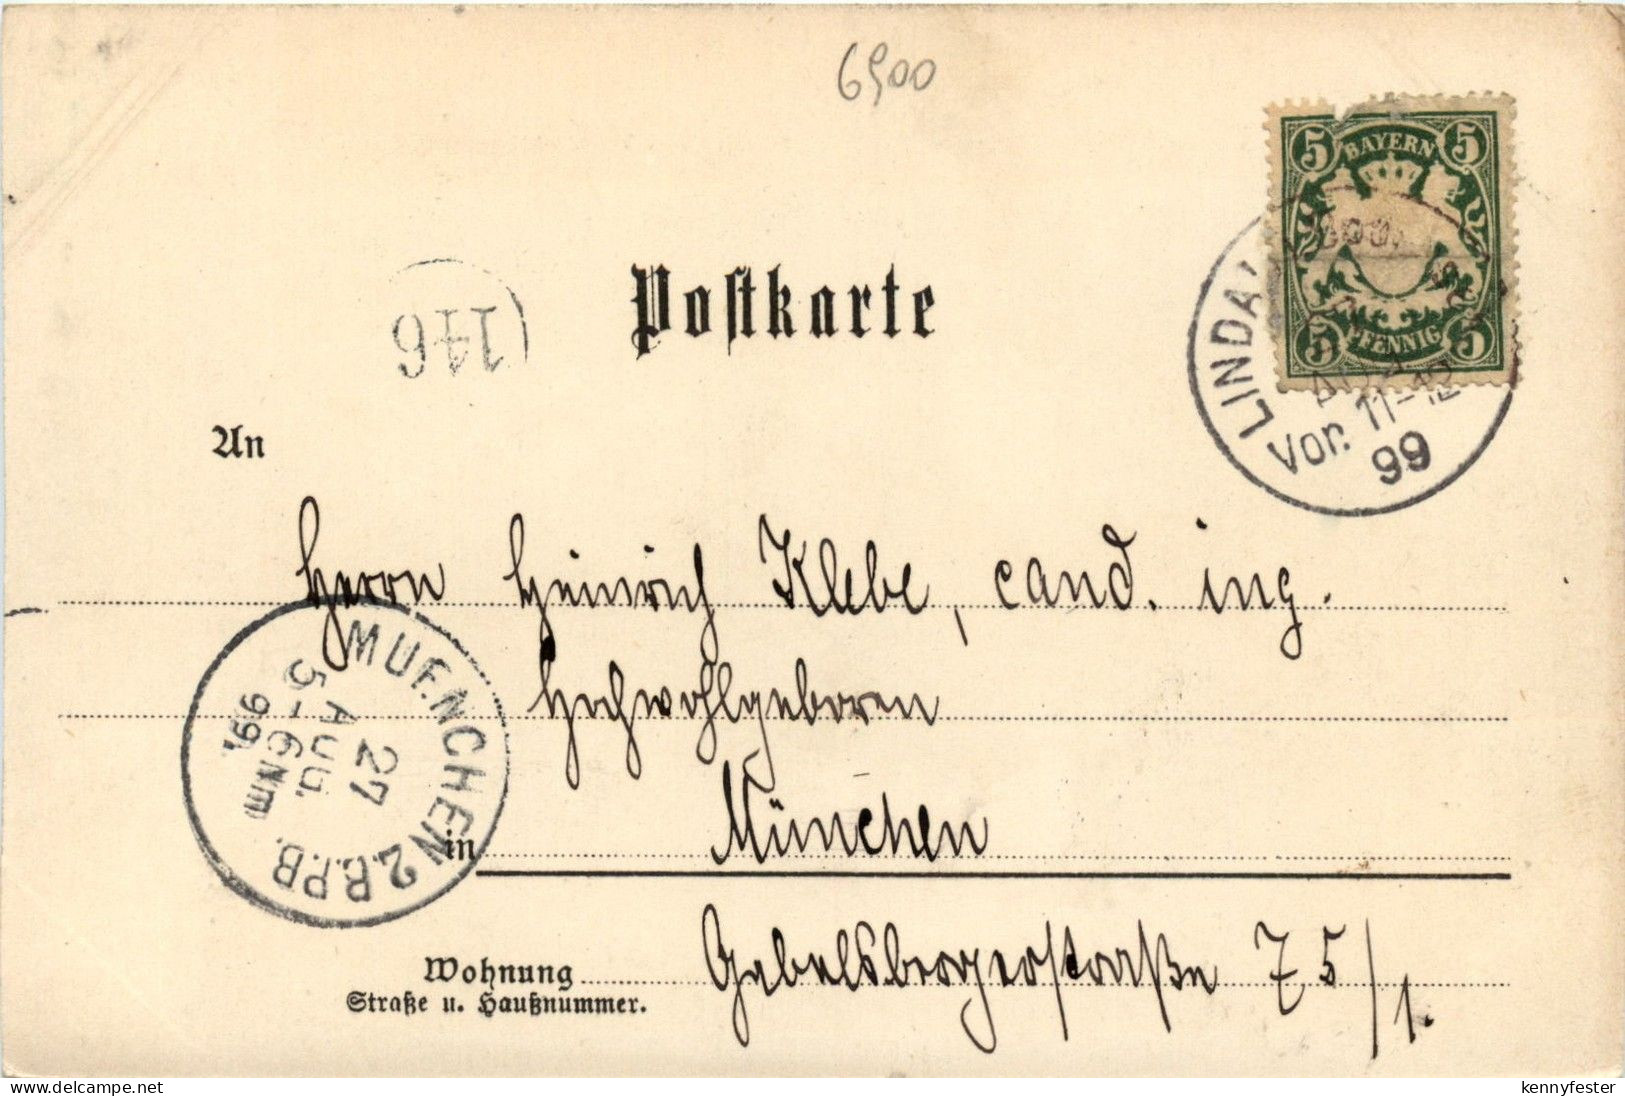 6900
5 BAYERN 5
5 PFENNIG 5
LINDAU
Vor. 11-12
99
146
Postkarte
An
Herrn Heinrich Klebe, cand. ing.
Hochwohlgeboren
in München
MUENCHEN 2. B.P.B.
27
AUG.
5-6 Nm
99.
Wohnung Gabelsbergerstraße 75/1.
Straße u. Haußnummer.
www.delcampe.net
kennyfester